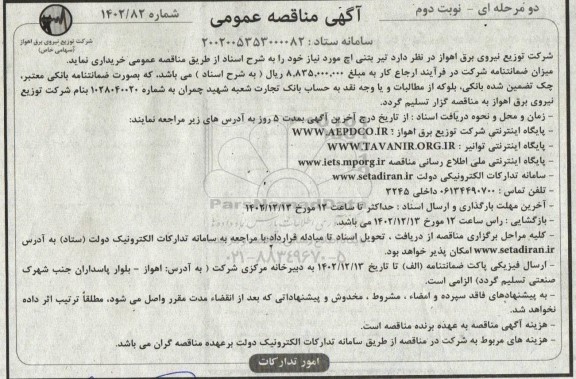 دو مرحله ای - نوبت دوم
آگهی مناقصه عمومی
شماره ۱۴۰۲/۸۲
سامانه ستاد : ۲۰۰۲۰۰۵۳۵۳۰۰۰۰۸۲
شرکت توزیع نیروی برق اهواز
(سهامی خاص)
شرکت توزیع نیروی برق اهواز در نظر دارد تیر بتنی اچ مورد نیاز خود را به شرح اسناد از طریق مناقصه عمومی خریداری نماید.
میزان ضمانتنامه شرکت در فرآیند ارجاع کار به مبلغ ۸,۸۳۵,۰۰۰,۰۰۰ ریال ( به شرح اسناد ) می باشد، که بصورت ضمانتنامه بانکی معتبر،
چک تضمین شده بانکی، بلوکه از مطالبات و یا وجه نقد به حساب بانک تجارت شعبه شهید چمران به شماره ۱۰۲۸۰۴۰۰۲۰ بنام شرکت توزیع
نیروی برق اهواز به مناقصه گزار تسلیم گردد.
- زمان و محل و نحوه دریافت اسناد : از تاریخ درج آخرین آگهی بمدت ۵ روز به آدرس های زیر مراجعه نمایند:
- پایگاه اینترنتی شرکت توزیع برق اهواز : WWW.AEPDCO.IR
- پایگاه اینترنتی توانیر : WWW.TAVANIR.ORG.IR
- پایگاه اینترنتی ملی اطلاع رسانی مناقصه www.iets.mporg.ir
- سامانه تدارکات الکترونیکی دولت www.setadiran.ir
- تلفن تماس : ۰۶۱۳۴۴۹۰۷۰۰ داخلی ۳۲۴۵
- آخرین مهلت بارگذاری و ارسال اسناد : حداکثر تا ساعت ۱۲ مورخ ۱۴۰۲/۱۲/۱۳
- بازگشایی : راس ساعت ۱۲ مورخ ۱۴۰۲/۱۲/۱۳ می باشد.
- کلیه مراحل برگزاری مناقصه از دریافت ، تحویل اسناد تا مبادله قرارداد با مراجعه به سامانه تدارکات الکترونیک دولت (ستاد) به آدرس
www.setadiran.ir امکان پذیر خواهد بود.
- ارسال فیزیکی پاکت ضمانتنامه (الف) تا تاریخ ۱۴۰۲/۱۲/۱۳ به دبیرخانه مرکزی شرکت ( به آدرس: اهواز - بلوار پاسداران جنب شهرک
صنعتی تسلیم گردد) الزامی است.
- به پیشنهادهای فاقد سپرده و امضاء ، مشروط ، مخدوش و پیشنهاداتی که بعد از انقضاء مدت مقرر واصل می شود، مطلقاً ترتیب اثر داده
نخواهد شد.
- هزینه آگهی مناقصه به عهده برنده مناقصه است.
- هزینه های مربوط به شرکت در مناقصه از طریق سامانه تدارکات الکترونیک دولت برعهده مناقصه گران می باشد.
امور تدارکات
۰۲۱-۸۸۳۴۹۶۷۰-۵